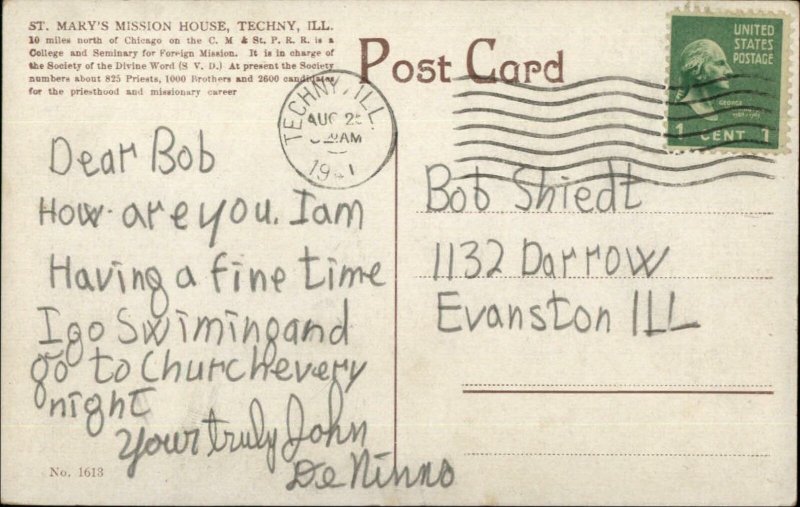 ST. MARY'S MISSION HOUSE, TECHNY, ILL.
10 miles north of Chicago on the C. M & St. P. R. R. is a
College and Seminary for Foreign Mission. It is in charge of
the Society of the Divine Word (S V. D.) At present the Society
numbers about 825 Priests, 1000 Brothers and 2600 candidates
for the priesthood and missionary career
Post Card
TECHNY, ILL.
AUG 25
AM
1941
UNITED
STATES
POSTAGE
GEORGE
1 CENT 1
Dear Bob
How are you. I am
Having a fine time
I go Swiming and
go to Church every
night
Your truly John
De Ninno
Bob Shiedt
1132 Darrow
Evanston ILL
No. 1613